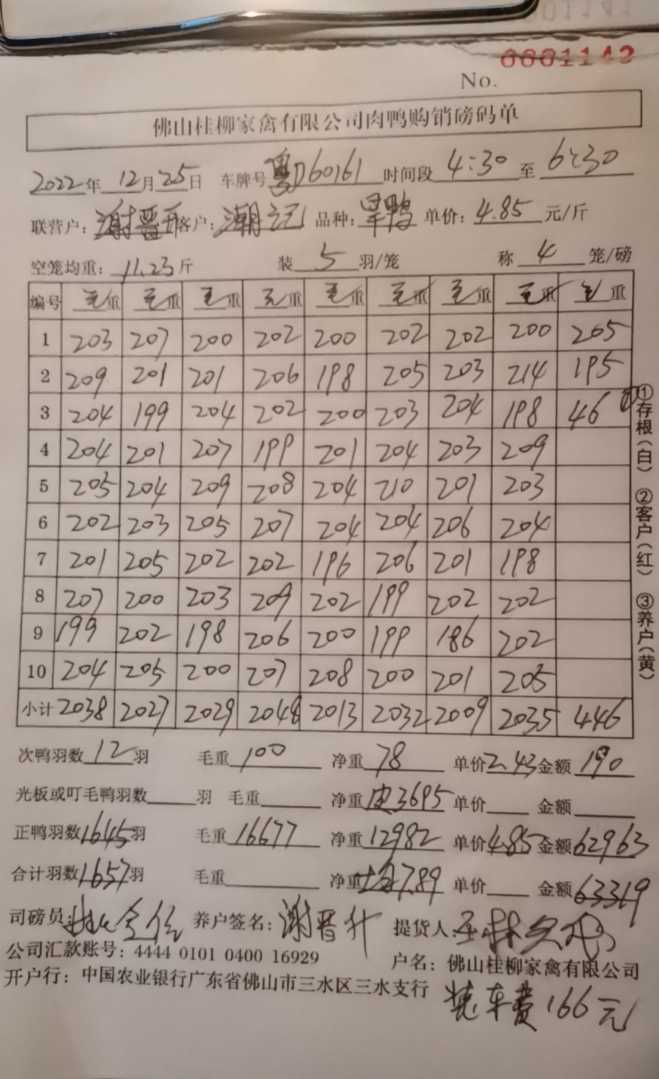 0001142
No.
佛山桂柳家禽有限公司肉鸭购销磅码单
2022年 12月25日 车牌号 粤D60161 时间段 4:30 至 6:30
联营户: 谢晋升 客户: 潮记 品种: 旱鸭 单价: 4.85 元/斤
空笼均重: 11.23斤 装 5 羽/笼 称 4 笼/磅
编号 毛重 毛重 毛重 毛重 毛重 毛重 毛重 毛重 毛重
1 203 207 200 202 200 202 202 200 205
2 209 201 201 206 198 205 203 214 195
3 204 199 204 202 200 203 204 198 46
4 204 201 207 199 201 204 203 209
5 205 204 209 208 204 210 201 203
6 202 203 205 207 204 204 206 204
7 201 205 202 202 196 206 201 198
8 207 200 203 209 202 199 202 202
9 199 202 198 206 200 199 186 202
10 204 205 200 207 208 200 201 205
小计 2038 2027 2029 2048 2013 2032 2009 2035 446
①存根(白) ②客户(红) ③养户(黄)
次鸭羽数 12 羽 毛重 100 净重 78 单价 2.43 金额 190
光板或叮毛鸭羽数 羽 毛重 净重 3695 单价 金额
正鸭羽数 1645 羽 毛重 16677 净重 12982 单价 4.85 金额 62963
合计羽数 1657 羽 毛重 净重 7.89 单价 金额 63319
司磅员: 养户签名: 谢晋升 提货人
公司汇款账号: 4444 0101 0400 16929 户名: 佛山桂柳家禽有限公司
开户行: 中国农业银行广东省佛山市三水区三水支行
装车费166元